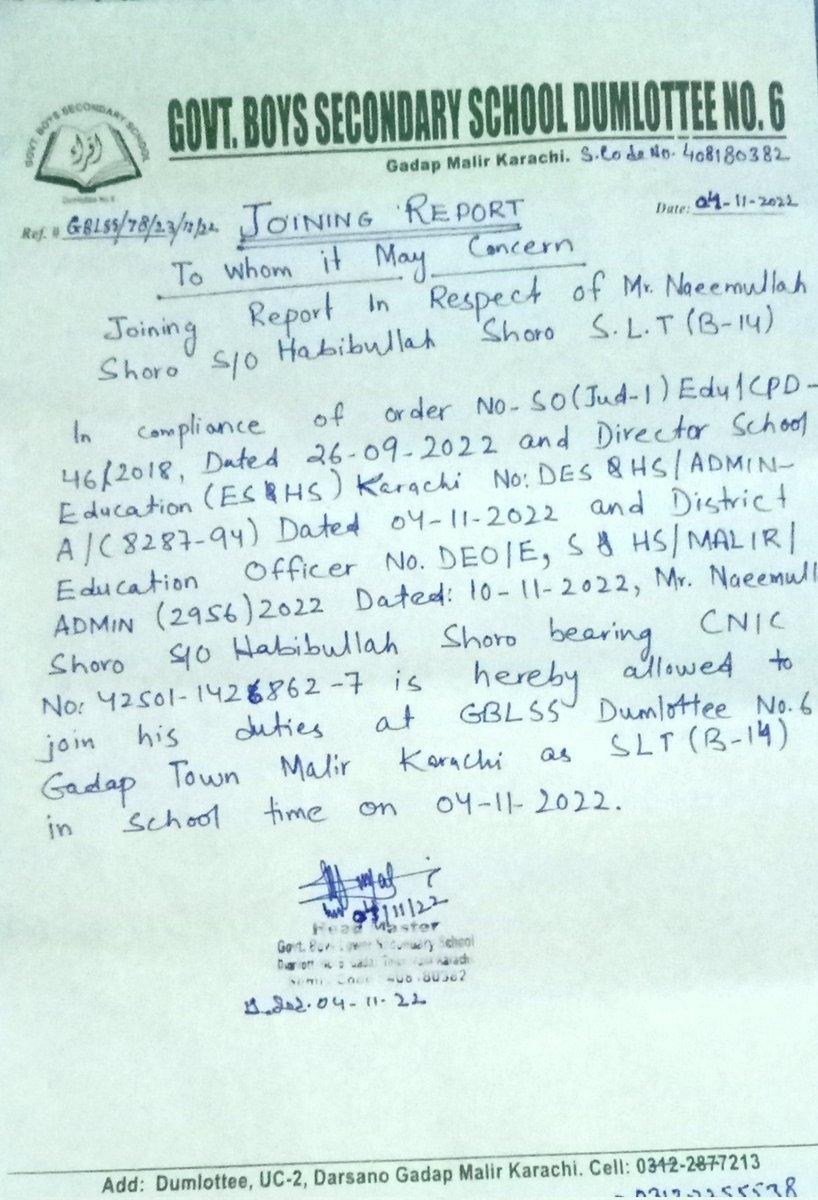 GOVT. BOYS SECONDARY SCHOOL
اقراء
GOVT. BOYS SECONDARY SCHOOL DUMLOTTEE NO. 6
Gadap Malir Karachi. S.Code No. 408180382
Ref. # GBLSS/78/23/11/22 JOINING REPORT Date: 04-11-2022
To Whom it May Concern
Joining Report In Respect of Mr. Naeemullah
Shoro S/O Habibullah Shoro S.L.T (B-14)
In compliance of order No- SO(Jud-1) Edu/CPD-
46/2018, Dated 26-09-2022 and Director School
Education (ES & HS) Karachi No: DES & HS/ADMIN-
A/(8287-94) Dated 04-11-2022 and District
Education Officer No. DEO/E, S & HS/MALIR/
ADMIN (2956)2022 Dated: 10-11-2022, Mr. Naeemull
Shoro S/O Habibullah Shoro bearing CNIC
No: 42501-1426862-7 is hereby allowed to
join his duties at GBLSS Dumlottee No. 6
Gadap Town Malir Karachi as SLT (B-14)
in school time on 04-11-2022.
04/11/22
Head Master
Govt. Boys Lower Secondary School
04-11-22
Add: Dumlottee, UC-2, Darsano Gadap Malir Karachi. Cell: 0312-2877213